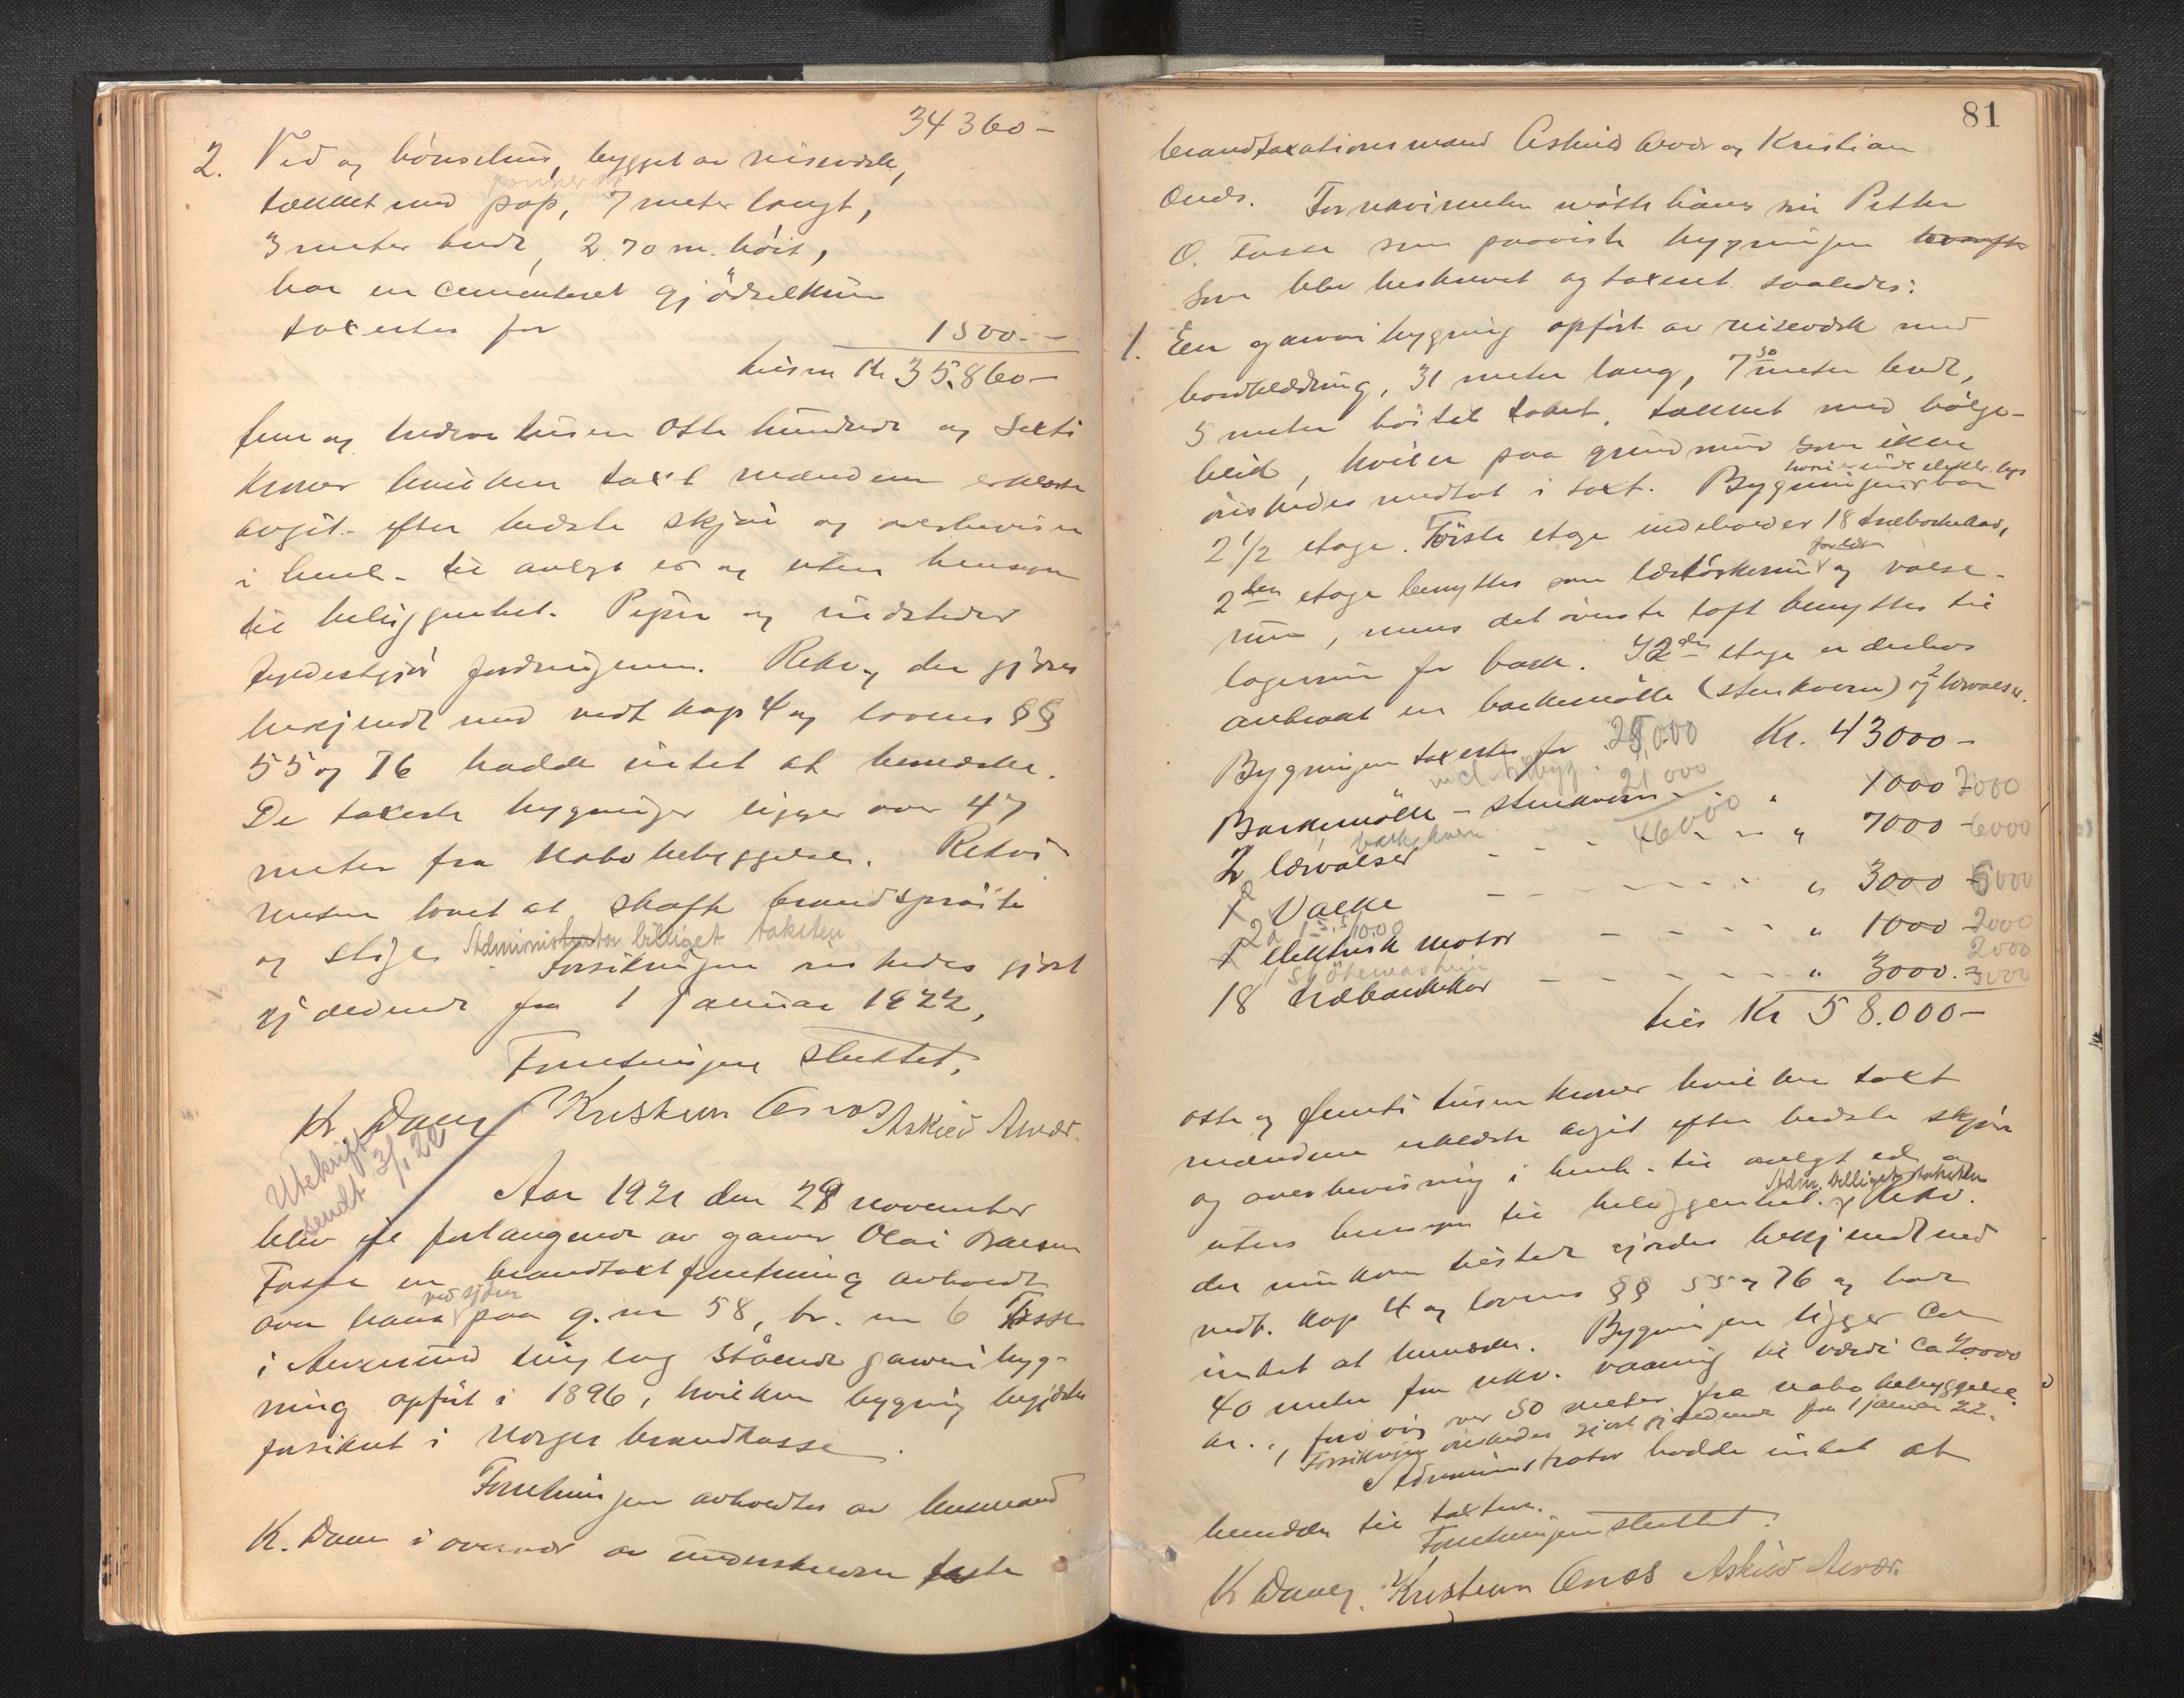 34360-
2. Ved og hönsehus, bygget av reisverk,
tækket med pap, 7 meter langt,
3 meter bredt, 2,70 m. höit,
har en cementeret gjödselkum
taxertes for 1500.-
tilsm Kr 35.860-
fem og tredve tusen Otte hundrede og Seksti
Kroner hvilken taxt mændene erklærte
avgit efter bedste skjön og overbevisn
i henh. til avlagt ed og uten hensyn
til beliggenhet. Piper og ildsteder
fyldestgjör fordringerne. Rekv., der gjöres
bekjendt med vedt kap 4 og lovens §§
55 og 76 hadde intet at bemerke.
De taxerte bygninger ligger over 47
meter fra Nabobebyggelse. Rekvi-
renten lovet at skaffe brandspröite
og stige. Administrator billiget taksten
Forsikringen önskedes gjort
gjældende fra 1 januar 1922,
Forretningen sluttet.
K Dam Kristian Askild
Utskrift
sendt 3/1 22
Aar 1921 den 29 november
blev efter forlangende av garver Olai
Fosse en brandtaxtforretning avholdt
over hans ved sjöen paa g.nr 58, br. nr 6 Fosse
i tinglag stående garveribyg-
ning opfört i 1896, hvilken bygning begjæres
forsikret i Norges brandkasse.
Forretningen avholdtes av lensmand
K. Dam i overvær av undertegnede faste
81
brandtaxationsmænd Askild og Kristian
For rekvirenten mötte hans sön Petter
O. Fosse som paaviste bygningen
som blev beskrevet og taxeret saaledes:
1. En garveribygning opfört av reisverk med
bordklædning, 31 meter lang, 7 50 meter bred,
5 meter höi til taket, tækket med bölge-
blik, hviler paa grundmur som ikke
önskedes medtat i taxt. Bygningen hvori er indl. elektr. lys har
2 1/2 etage. Förste etage indeholder 18 træbarkekar,
2den etage benyttes som lærtörkerum og valse-
rum, mens det överste loft benyttes til
lagerrum for bark. I 2den etage er derhos
anbragt en barkemölle (stenkvern) og 2 lærvalser.
Bygningen taxertes for 25,000 Kr. 43000-
Barkemölle - stenkvern 21 000 " 1000 2000
barkekvern 46000
2 lærvalser - - - " 7000 - 6000
1 2 Valke - - - " 3000 - 6000
2 à
1 elektrisk motor - - - " 1000 - 2000
1 stötemaskin 2000
18 træbarkekar - - - " 3000.- 3000
tils Kr 58.000-
otte og femti tusen kroner hvilken taxt
mændene erklærte avgit efter bedste skjön
og overbevisning i henh. til avlagt ed og
uten hensyn til beliggenhet. Adm. billiget taksten Rekv.
der nu kom tilstede gjordes bekjendt med
vedt. kap 4 og lovens §§ 55 og 76 og hadde
intet at bemerke. Bygningen ligger ca
40 meter fra rekv. vaaning til værdi ca 20000
kr., forövrig over 50 meter fra nabobebyggelse.
Forsikringen önskedes gjort gjældende fra 1 januar 22.
Administrator hadde intet at
bemerke til taxten.
Forretningen sluttet.
K Dam. Kristian Askild